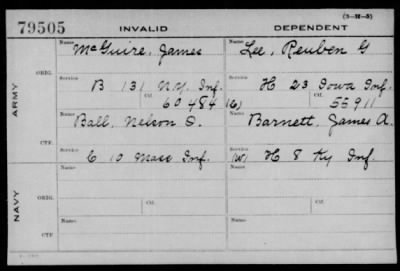 (3-M-5)
79505 INVALID DEPENDENT
Name McGuire, James Name Lee, Reuben G
ARMY ORIG. Service B 131 N.Y. Inf. Service H 23 Iowa Inf.
Ctf. 60484 (6) Ctf. 55911
Name Ball, Nelson O. Name Barnett, James A.
CTF. Service C 10 Mass Inf. Service (W) H 8 Ky Inf.
NAVY ORIG. Name Name
Service Ctf. Service Ctf.
CTF. Name Name